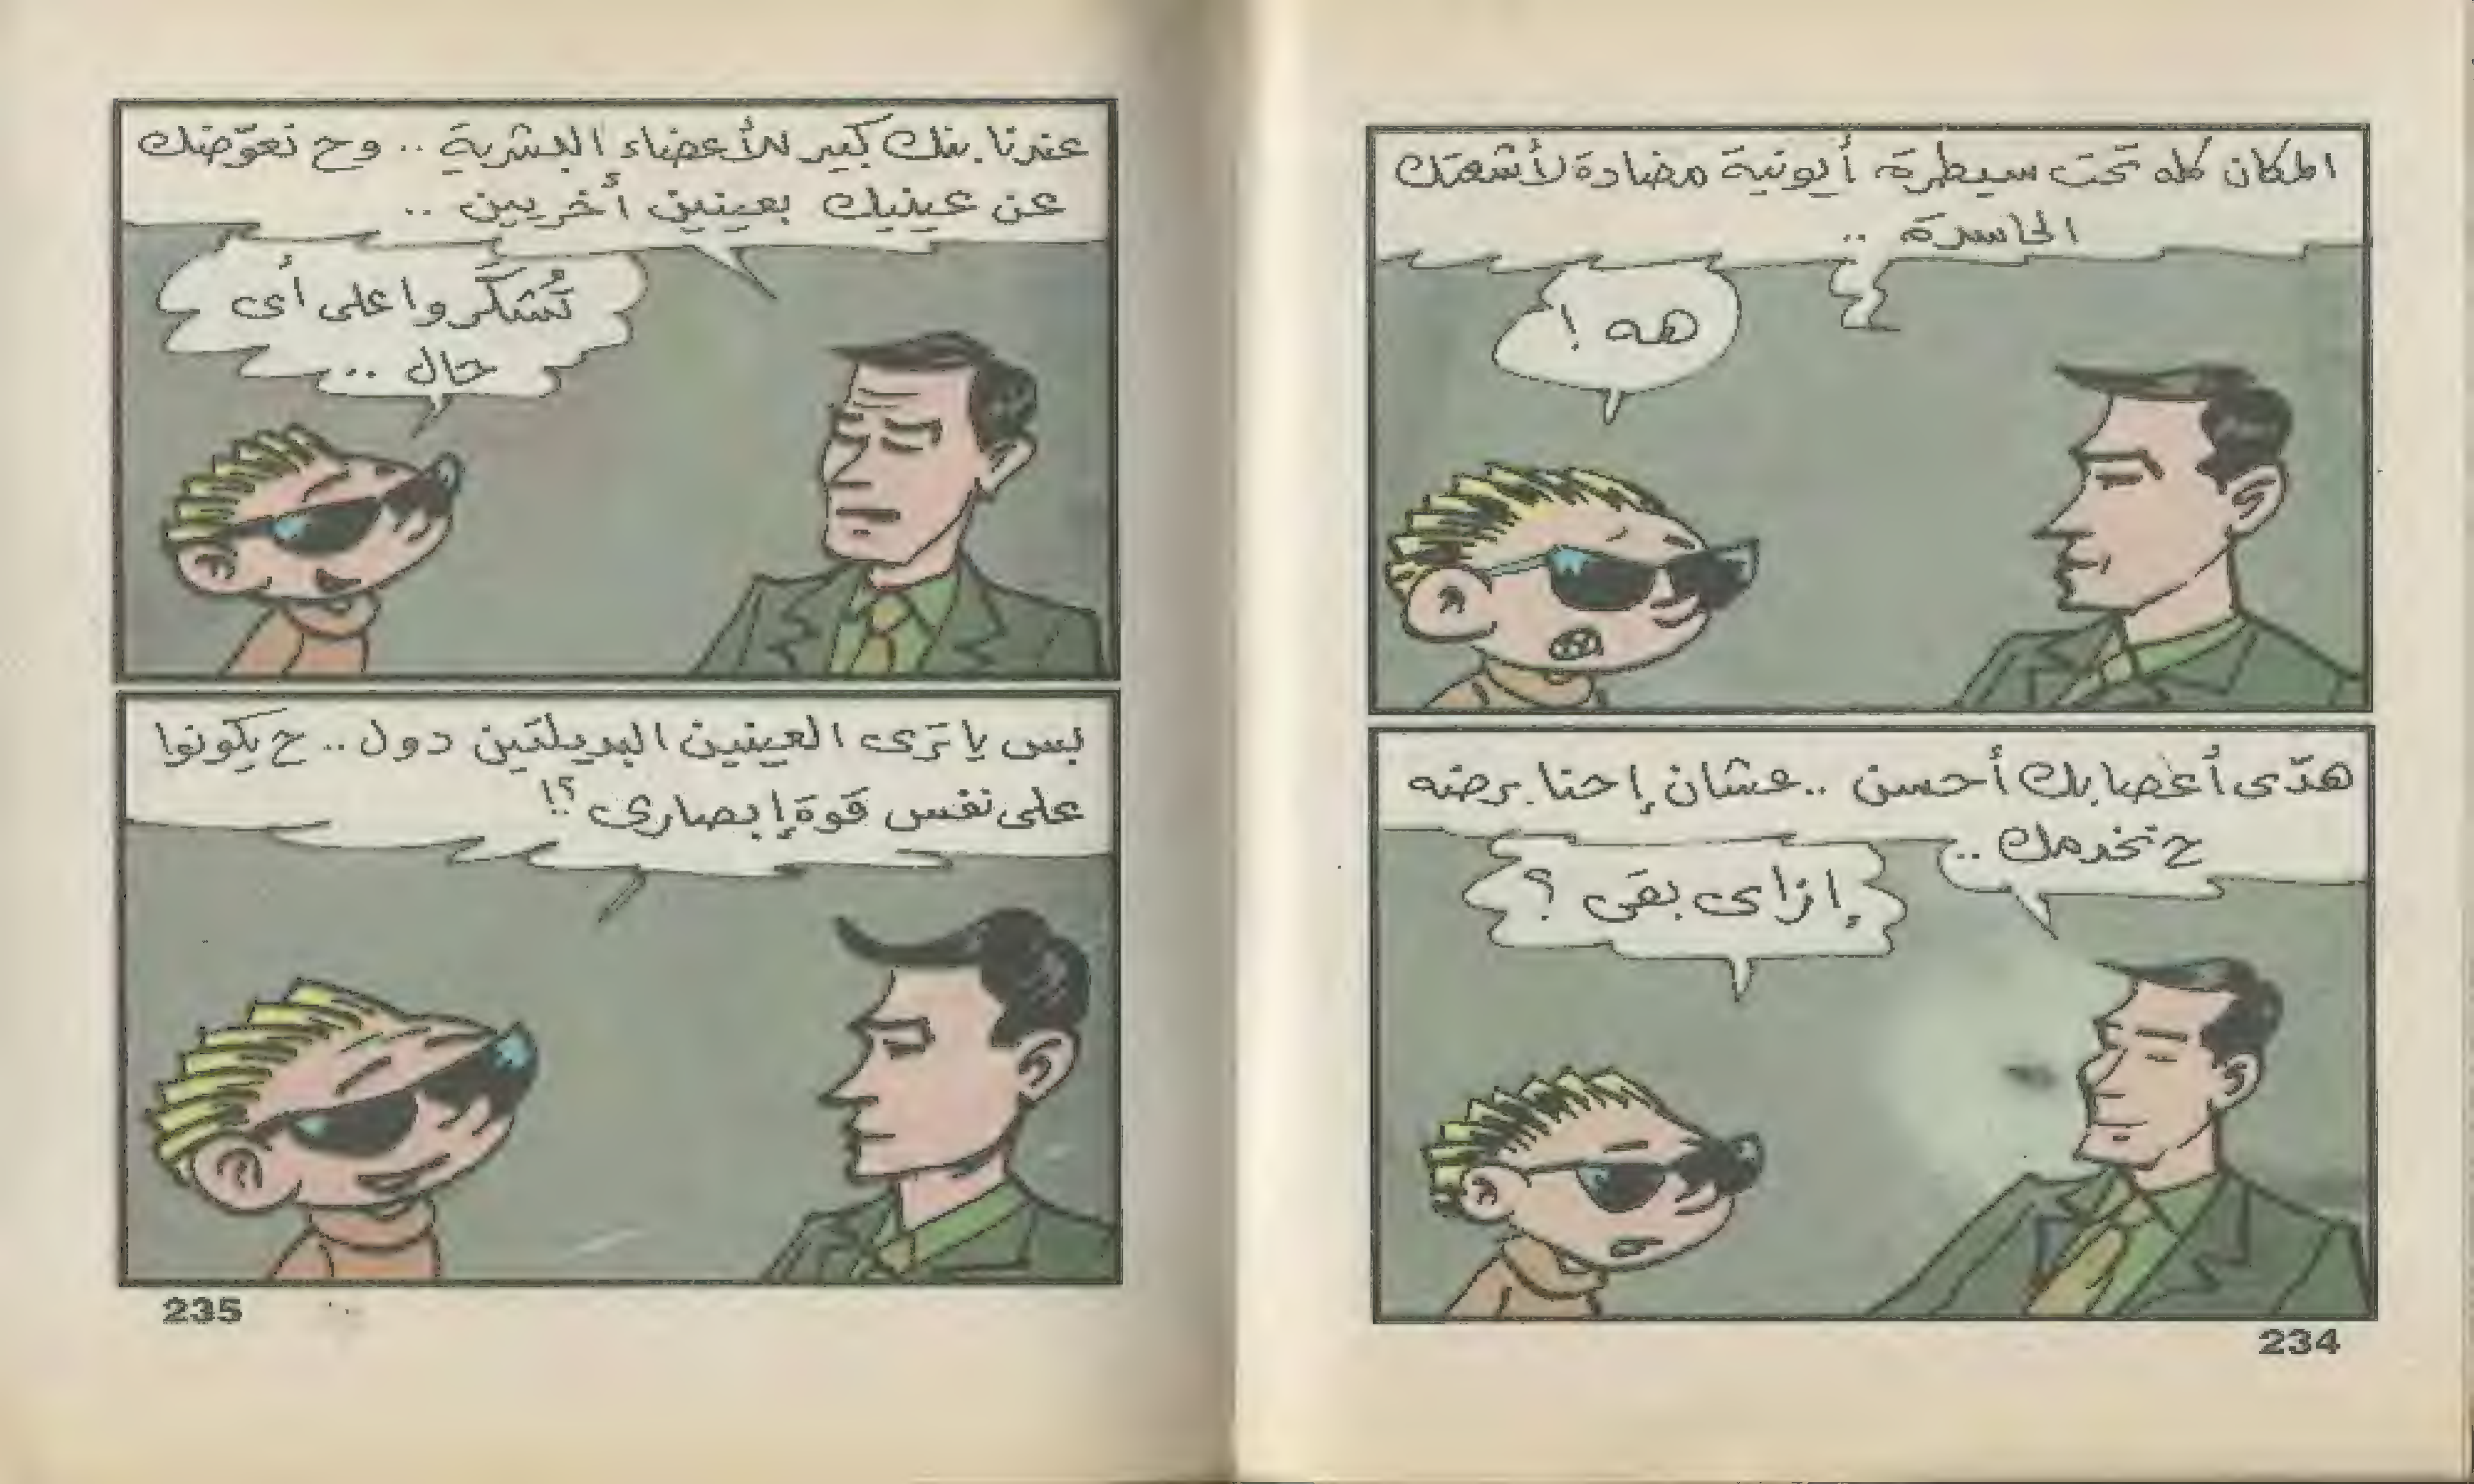 المكان كله تحت سيطرة أيونية مضادة لأشعتك
الحاسدة ..
هه !
هدّى أعصابك أحسن .. عشان إحنا برضه
ح نخدمك ..
إزاى بقى ؟
234
عندنا بنك كبير للأعضاء البشرية .. وح نعوّضك
عن عينيك بعينين أخريين ..
تُشكَروا على أى
حال ..
بس يا ترى العينين البديلتين دول .. ح يكونوا
على نفس قوة إبصارى ؟!
235